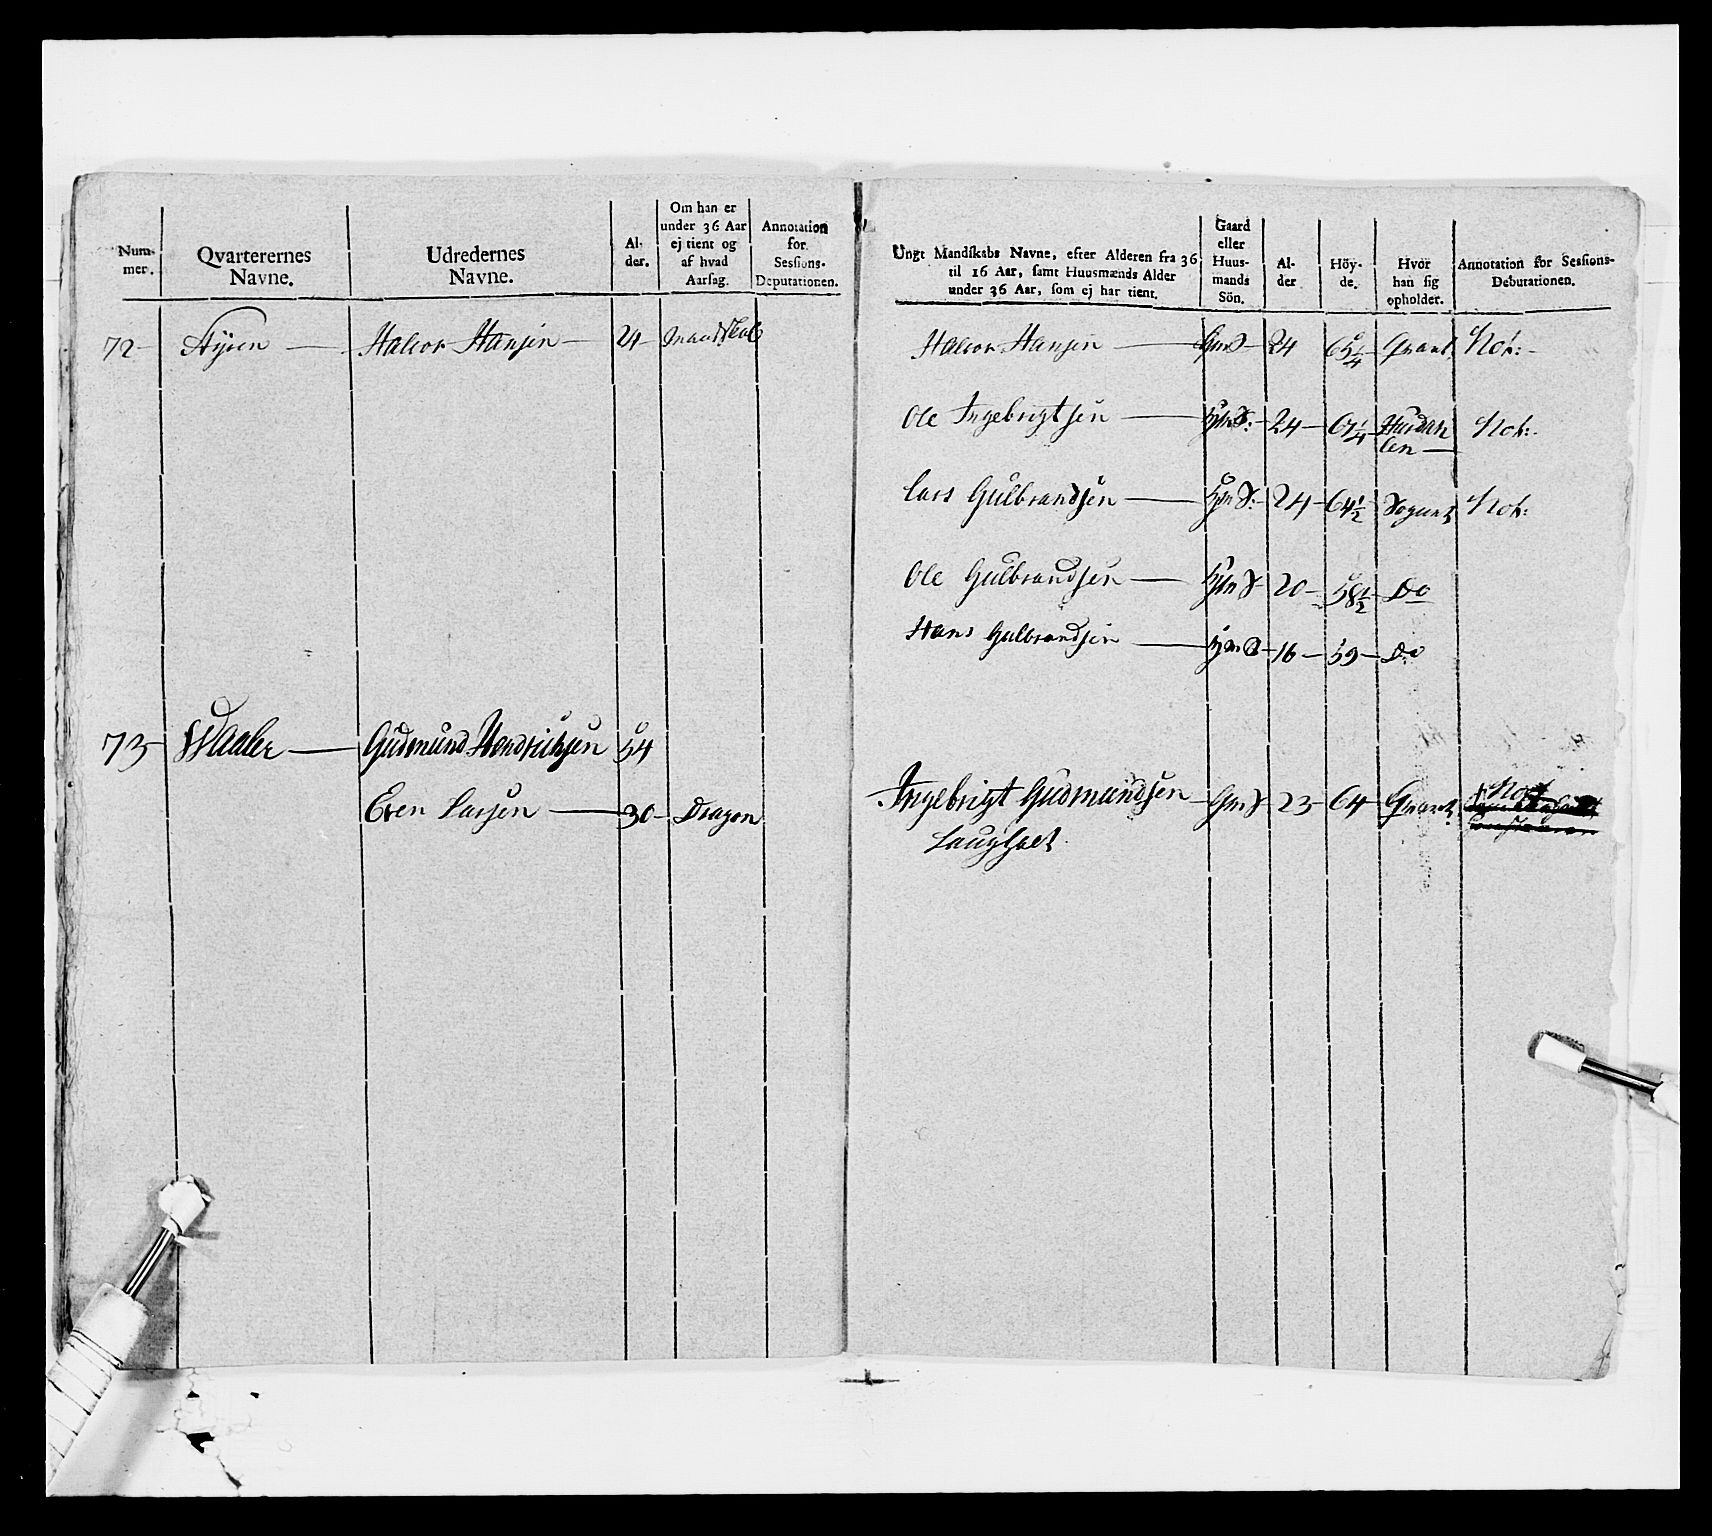 Num-
mer.
Qvarterernes
Navne.
Udredernes
Navne.
Al-
der.
Om han er
under 36 Aar
ej tient og
af hvad
Aarsag.
Annotation
for
Sessions-
Deputationen.
72 Halvor Hansen 24 Mandskab
73 Waaler Gudmund Hendrichsen 54
Even Larsen 30 Dragon
Ungt Mandskabs Navne, efter Alderen fra 36
til 16 Aar, samt Huusmænds Alder
under 36 Aar, som ej har tient.
Gaard
eller
Huus-
mands
Sön.
Al-
der
Höy-
de.
Hvor
han sig
opholder.
Annotation for Sessions-
Deputationen.
Halvor Hansen GmS 24 65 1/4 Qvart Not:
Ole Ingebrigtsen HmS: 24 67 1/4 Hurda
len Not:
Lars Gulbrandsen HmS: 24 64 1/2 Sognet Not:
Ole Gulbrandsen HmS 20 58 1/2 Do
Hans Gulbrandsen HmS 16 59 Do
Ingebrigt Gudmundsen GmS 23 64 Qvart Not